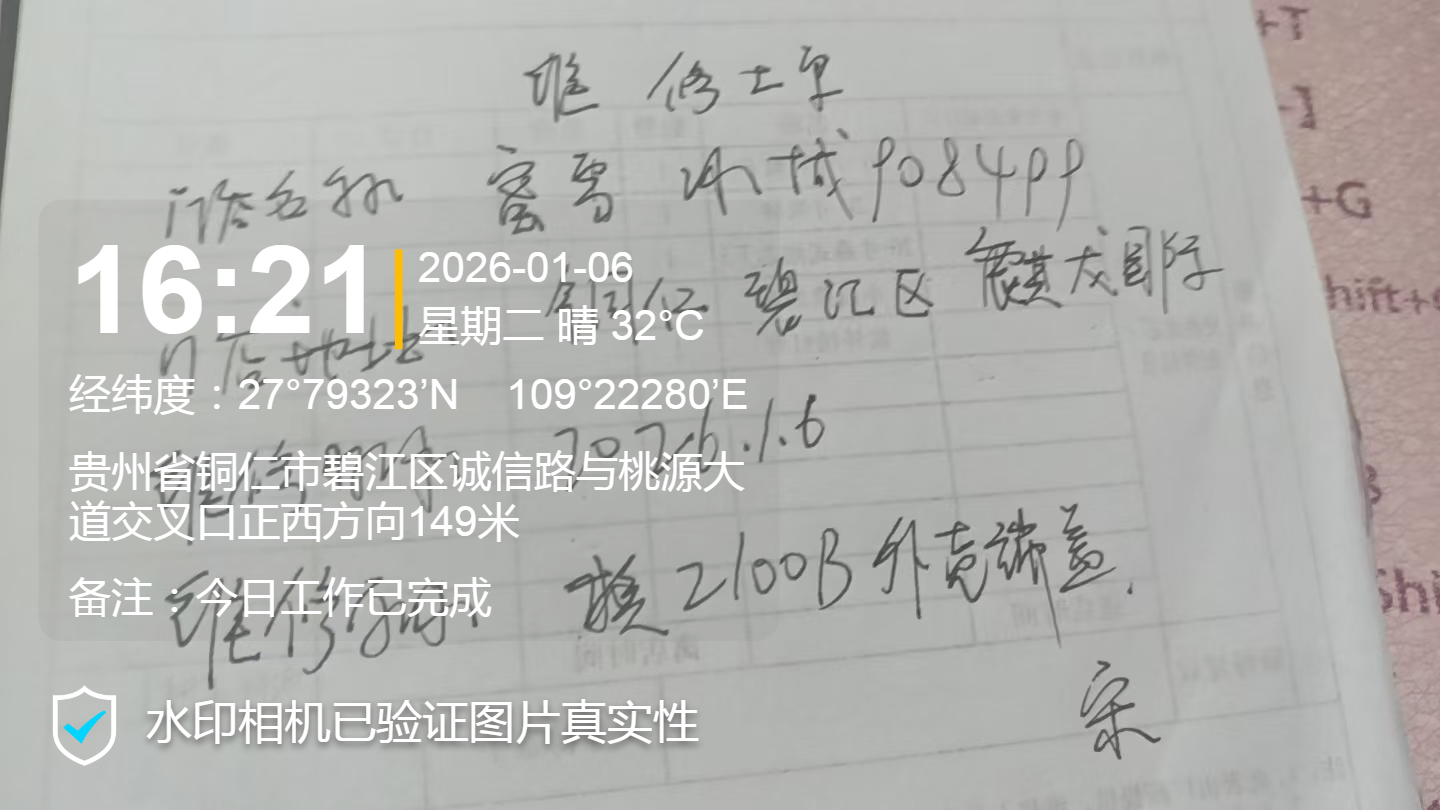 维修工单
门店名称 蜜雪冰城908499
门店地址 铜仁碧江区麒龙国际
2026.1.6
维修 换2100B外壳端盖.
宋
16:21
2026-01-06
星期二 晴 32°C
经纬度：27°79323’N 109°22280’E
贵州省铜仁市碧江区诚信路与桃源大
道交叉口正西方向149米
备注：今日工作已完成
水印相机已验证图片真实性
+T
+G
hift+